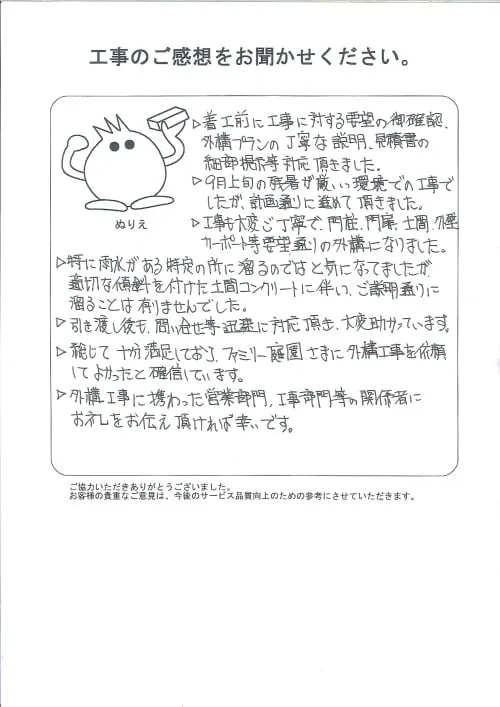 工事のご感想をお聞かせください。
▷着工前に工事に対する要望の御確認、
外構プランの丁寧な説明、見積書の
細部提示等対応頂きました。
▷9月上旬の残暑が厳しい環境での工事で
したが、計画通りに進めて頂きました。
▷工事も大変ご丁寧で、門柱、門扉、土間、外壁
カーポート等要望通りの外構になりました。
ぬりえ
▷特に雨水がある特定の所に溜るのではと気になってましたが
適切な傾斜を付けた土間コンクリートに伴い、ご説明通りに
溜ることは有りませんでした。
▷引き渡し後も、問い合せ等迅速に対応頂き、大変助かっています。
▷総じて十分満足しており、ファミリー庭園さまに外構工事を依頼
してよかったと確信しています。
▷外構工事に携わった営業部門、工事部門等の関係者に
お礼をお伝え頂ければ幸いです。
ご協力いただきありがとうございました。
お客様の貴重なご意見は、今後のサービス品質向上のための参考にさせていただきます。